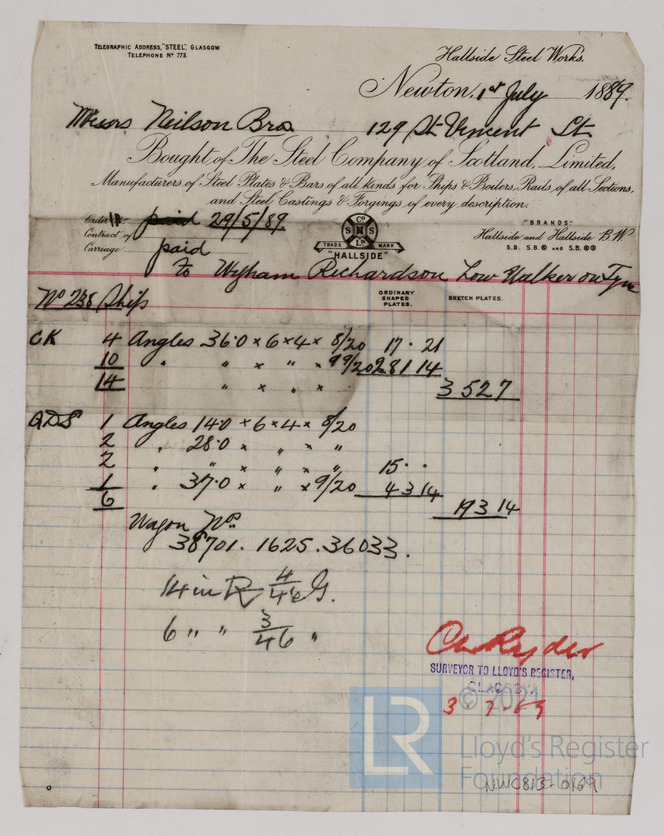 TELEGRAPHIC ADDRESS, "STEEL" GLASGOW.
TELEPHONE No 773.
Hallside Steel Works.
Newton, 1st July 1889.
Messrs Neilson Bros. 129 St Vincent St.
Bought of The Steel Company of Scotland, Limited,
Manufacturers of Steel Plates & Bars of all kinds for Ships & Boilers, Rails of all Sections,
and Steel Castings & Forgings of every description.
Order No 29/5/89
Contract of
Carriage paid
Co
S H S
Ld
TRADE MARK
"HALLSIDE"
"BRANDS"
Hallside and Hallside B.W
to Wigham Richardson Low Walker on Tyne
ORDINARY SHAPED PLATES.
SKETCH PLATES.
No 238 Ships
CK 4 Angles 36.0 x 6 x 4 x 8/20 17 . 21
10 " " x " x 9/20 281 14
14 " x " x 3527
QDS 1 Angles 14.0 x 6 x 4 x 8/20
2 " 28.0 x " x "
2 " " x " x " 15 . .
1 " 37.0 x " x 9/20 43 14
6 193 14
Wagon Nos
38701 . 1625 . 36033.
14 in 4/46 G.
6 " " 3/46 "
SURVEYOR TO LLOYD'S REGISTER,
GLASGOW
3 7 - 89
© 2021
LR
Lloyd's Register
Foundation
NWC813-0169